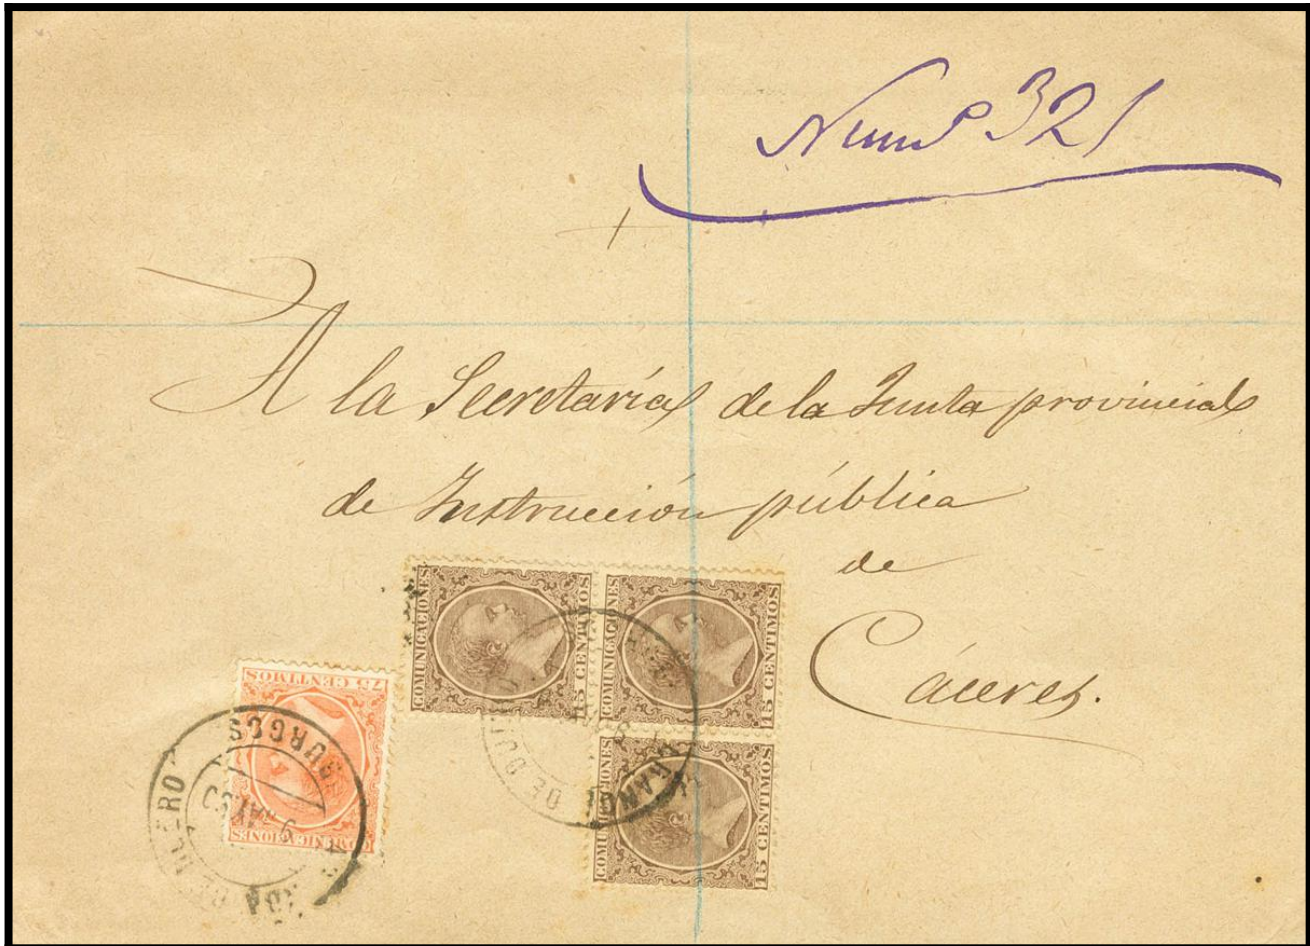 Numº 321
A la Secretaría de la Junta provincial
de Instrucción pública
de
Cáceres.
COMUNICACIONES
15 CENTIMOS
COMUNICACIONES
15 CENTIMOS
COMUNICACIONES
15 CENTIMOS
75 CENTIMOS
COMUNICACIONES
BURGOS
DE DUERO